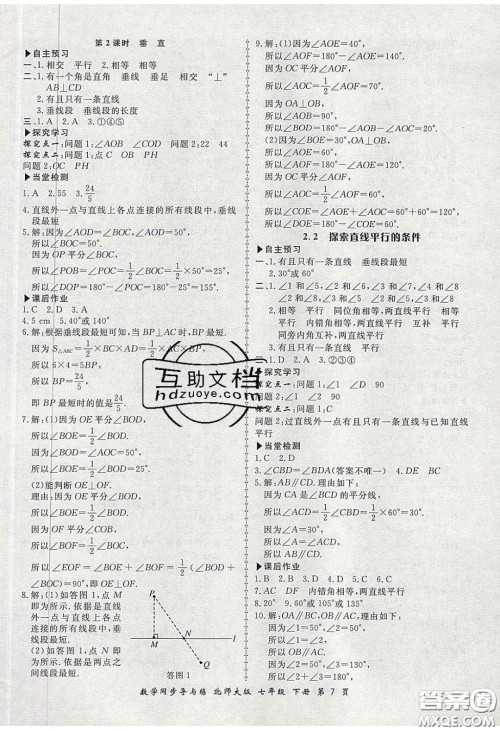 第2课时 垂 直
▶自主预习
一、相交 平行 2.相等 相等
二、1.有一个角是直角 垂线 垂足 相交 “⊥”
AB⊥CD
2.有且只有一条直线
3.垂线段最短 垂线段的长度
三、1.A 2.A 3.①④⑤
▶探究学习
探究点一:问题1:∠AOB ∠COD 问题2:22 44
探究点二:问题1:点C OB PH
问题2:OC PH
▶当堂检测
1.A 2.55 3.24/5
4.直线外一点与直线上各点连接的所有线段中,垂线
段最短
5.解:因为∠AOD=50°,
所以∠BOC=50°.
因为OP平分∠BOC,
所以∠POB=∠POC=1/2∠BOC=1/2×50°=25°,
所以∠POD=180°-∠POC=180°-25°=155°.
▶课后作业
1.C 2.D 3.A
4.5 cm 5.40°或140°
6.解:根据垂线段最短可知,当BP⊥AC时,BP最短.
因为S△ABC=1/2×BC×AD=1/2×AC×BP,
所以6×4=5BP,
所以BP=24/5,
即BP最短时的值是24/5.
7.解:(1)因为OE平分∠BOD,
所以∠BOE=1/2∠BOD,
所以∠BOE=1/2∠BOD=
(2)能判断OE⊥OF.
理由:因为OE平分∠BOD,
所以∠BOE=1/2∠BOD.
因为OF平分∠BOC,
所以∠BOF=1/2∠BOC,
所以∠EOF=∠BOE+∠BOF=1/2(∠BOD+
∠BOC)=90°,即OE⊥OF.
8.解:(1)如答图1,点M
即为所示.依据是直线
外一点与直线上各点连
接的所有线段中,垂
线段最短.
(2)如答图1,点N即
为所示.依据是两点之
间线段最短.
P
M N l
Q
答图1
9.解:(1)因为∠AOE=40°,
所以∠AOF=180°-∠AOE=140°.
因为OC平分∠AOF,
所以∠AOC=1/2∠AOF=70°.
因为OA⊥OB,
所以∠AOB=90°.
所以∠BOD=180°-∠AOC-∠AOB=20°.
(2)因为∠AOE=60°,
所以∠AOF=180°-∠AOE=120°.
因为OC平分∠AOF,
所以∠AOC=1/2∠AOF=60°,
所以∠COE=∠AOE+∠AOC=60°+60°=120°.
所以∠DOF=∠COE=120°.
2.2 探索直线平行的条件
▶自主预习
一、1.有且只有一条直线 垂线段最短
2.30°或60°
二、1.∠1和∠5,∠2和∠6,∠3和∠7,∠4和∠8
相等 平行 同位角相等,两直线平行 相等
平行 内错角相等,两直线平行 互补 平行
同旁内角互补,两直线平行
3.有且只有一条直线 平行
三、1.D 2.A 3.②③④
▶探究学习
探究点一:问题1:∠1 ∠D 90
问题2:∠1 ∠2 90
探究点二:问题1:C
问题2:过直线外一点有且只有一条直线与已知直线
平行
▶当堂检测
1.C 2.D
3.∠CBD=∠BDA(答案不唯一) 4.DE BC
5.解:AB∥CD.理由如下:
因为CA是∠BCD的平分线,
所以∠ACD=1/2∠BCD=1/2×60°=30°.
因为∠A=30°,
所以∠A=∠ACD,
所以AB∥CD.
▶课后作业
1.B 2.B 3.C 4.B 5.D 6.C
7.AC DF 内错角相等,两直线平行
8.20° 9.60°或105°或135°
10.解:AB∥CD.理由如下:
互助文档
hdzuoye.com
数学同步导与练 北师大版 七年级 下册 第7页